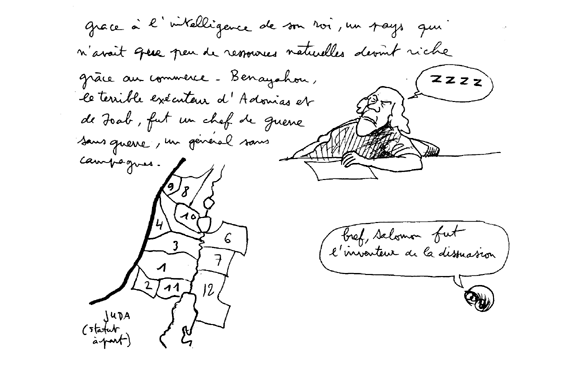 grace à l'intelligence de son roi, un pays qui
n'avait que peu de ressources naturelles devint riche
grâce au commerce - Benayahou,
le terrible exécuteur d'Adonias et
de Joab, fut un chef de guerre
sans guerre, un général sans
campagnes.
zzzz
9
8
10
4
6
3
7
1
2
11
12
JUDA
(statut
à part)
bref, salomon fut
l'inventeur de la dissuasion